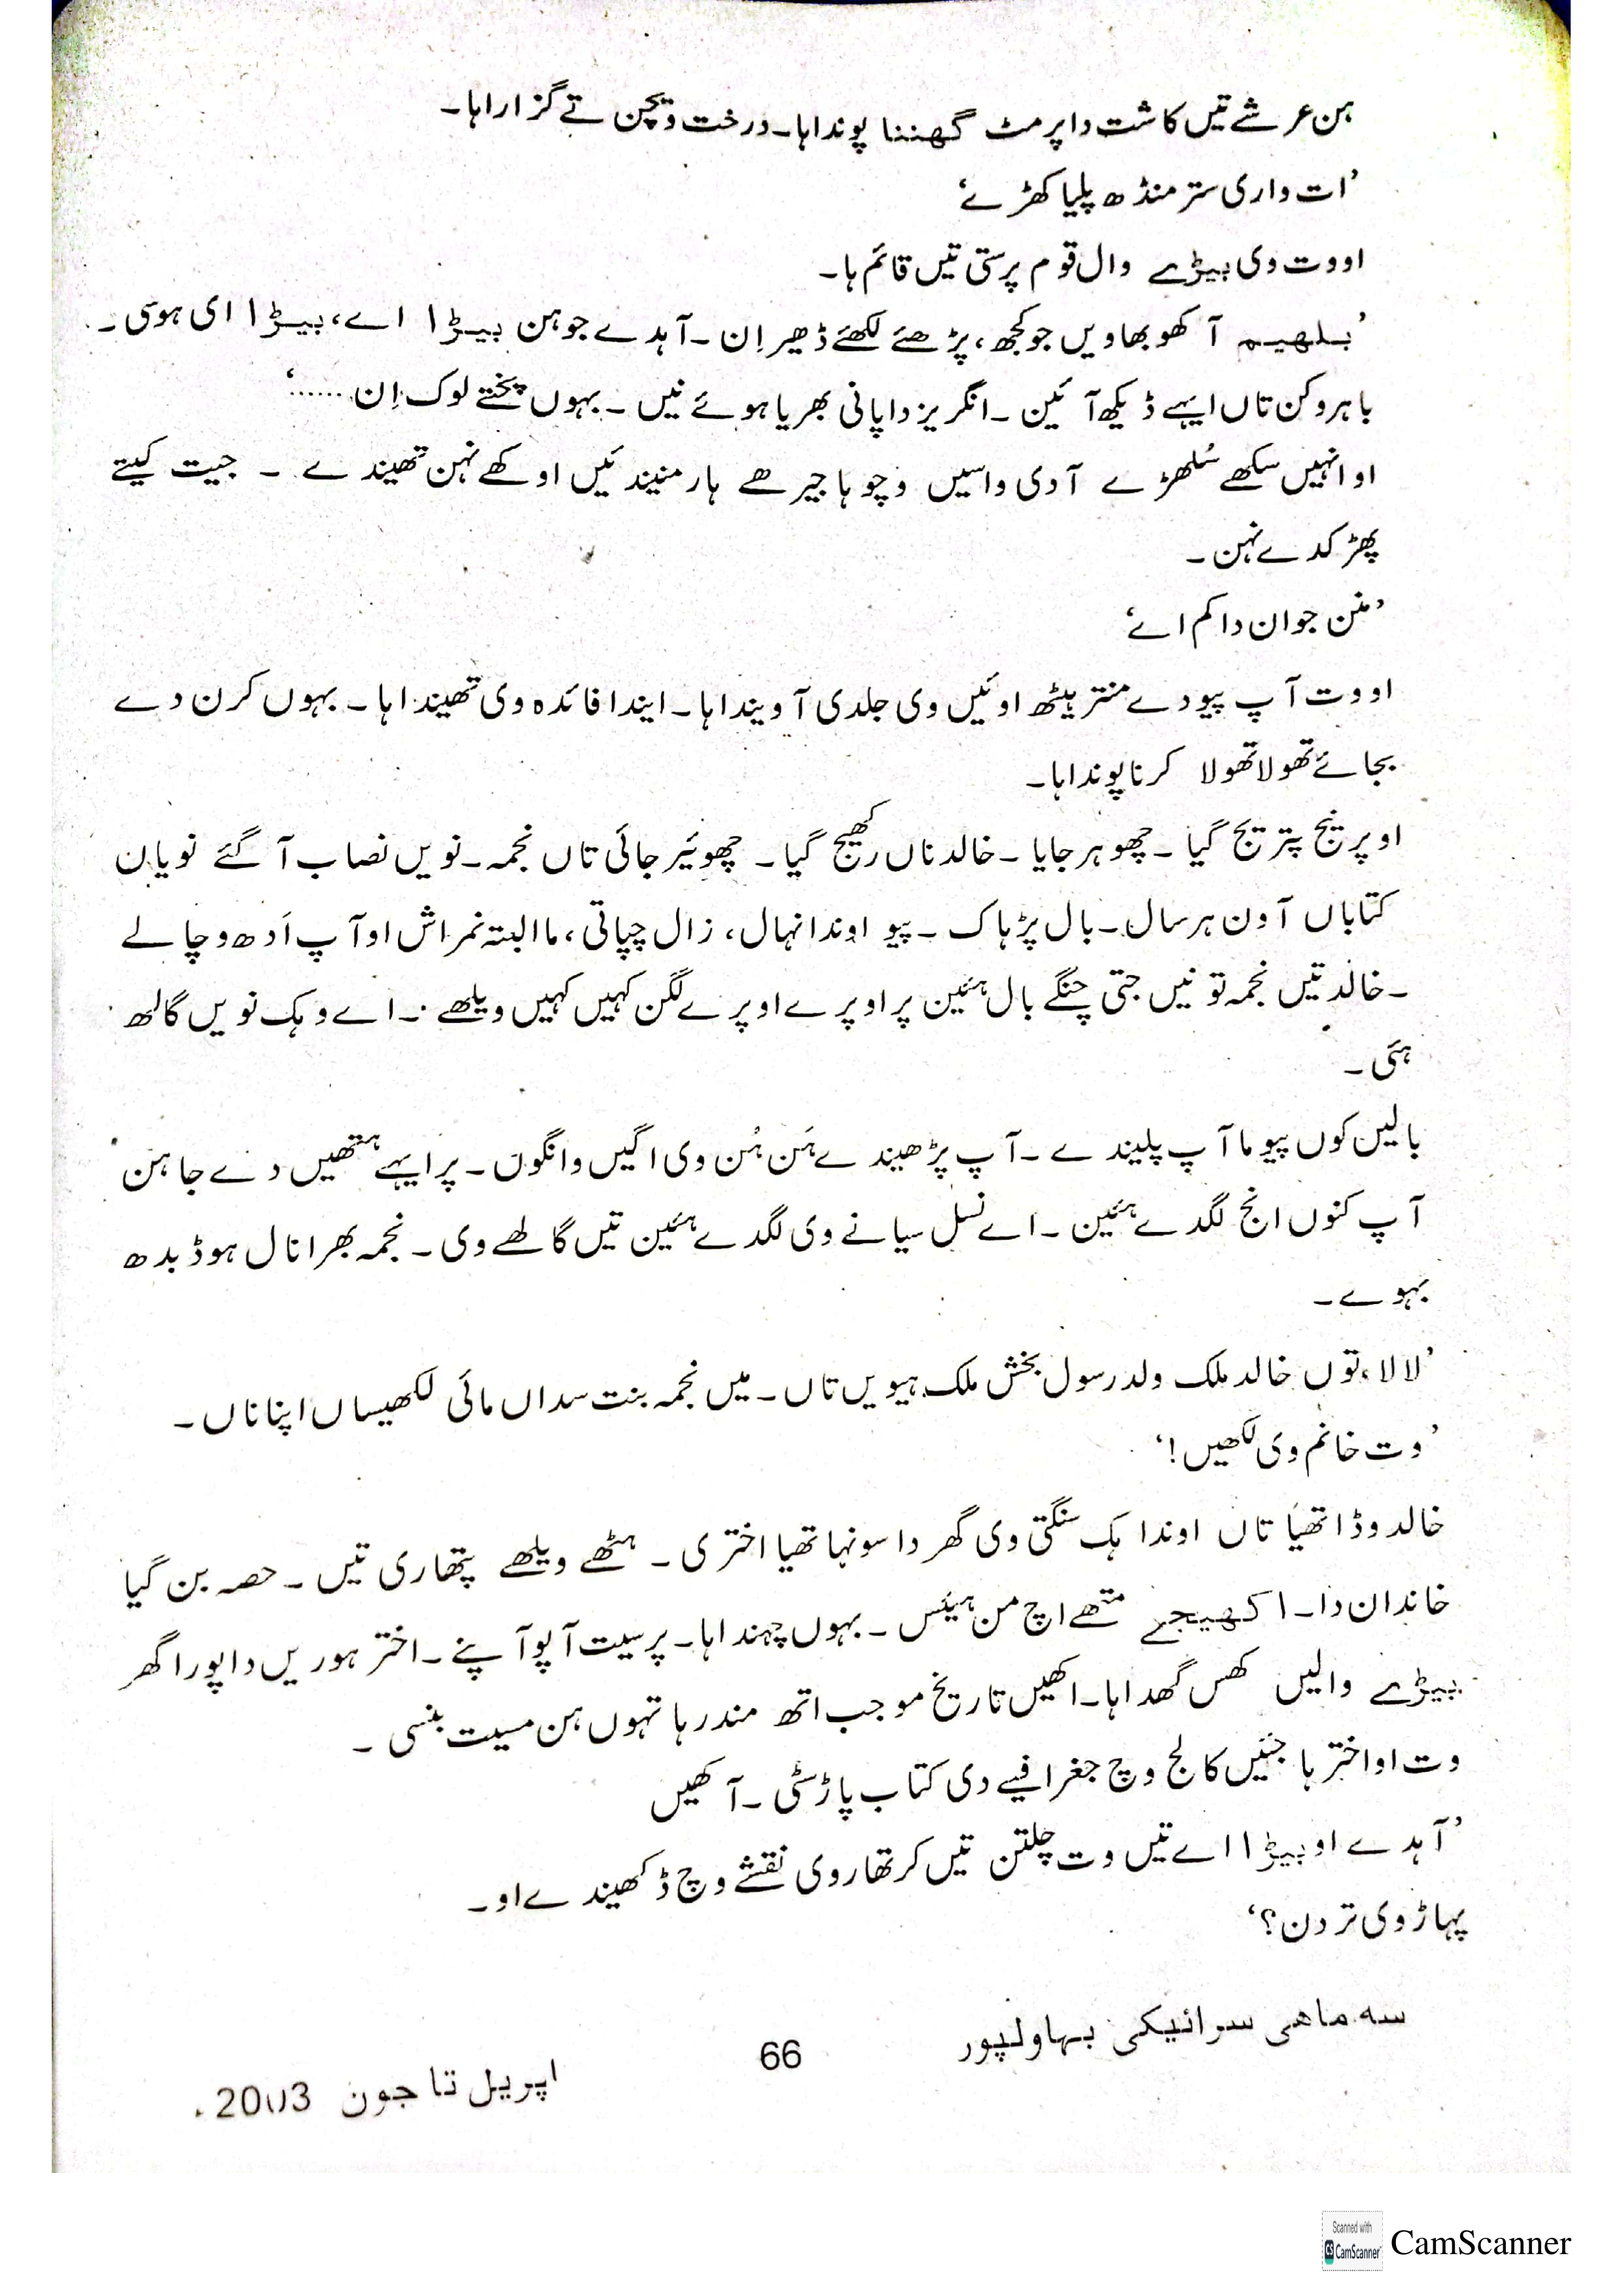 ہن عرشے تیں کاشت دا پرمٹ گھننا پوندا ہا۔ درخت ویچن تے گزارا ہا۔
'ات واری ستر منڈھ پلیا کھڑے'
او وت وی بیڑے وال قوم پرستی تیں قائم ہا۔
'بلھیم آکھو بھاویں جو کجھ، پڑھئے لکھئے ڈھیر اِن۔ آہدے جو ہن بیڑا اے، بیڑا ای ہوسی۔
باہروکن تاں ایہے ڈیکھ آئین۔ انگریز دا پانی بھریا ہوئے نیں۔ بہوں پختے لوک اِن......'
او انہیں سکھے سُلھڑے آدی واسیں وچو ہا جیرھے ہار منیندئیں اوکھے نہن تھیندے ۔ جیت کیتے
پھڑکدے نہن۔
'منن جوان دا کم اے'
او وت آپ پیو دے منتر ہیٹھ اوئیں وی جلدی آ ویندا ہا۔ ایندا فائدہ وی تھیندا ہا۔ بہوں کرن دے
بجائے تھولا تھولا کرنا پوندا ہا۔
او پرنیج پتریج گیا ۔ چھوہر جایا ۔ خالد ناں رکھیج گیا ۔ چھوئیر جائی تاں نجمہ۔ نویں نصاب آ گئے نویان
کتاباں آون ہر سال۔ بال پڑہاک ۔ پیو اوندا نہال، زال چپاتی، ما البتہ نمراش او آپ اَدھ وچالے
۔ خالد تیں نجمہ تونیں جتی چنگے بال ہئین پر اوپرے اوپرے لگن کہیں کہیں ویلھے ۔ اے وہک نویں گالھ
ہئی ۔
بالیں کوں پیو ما آپ پلیندے ۔ آپ پڑھیندے ہَن ہُن وی اگیں وانگوں ۔ پر ایہے ہتھیں دے جاہن
آپ کنوں انج لگدے ہئین ۔ اے نسل سیانے وی لگدے ہئین تیں گالھے وی ۔ نجمہ بھرا نال ہوڈ بدھ
بہوے ۔
'لالا، توں خالد ملک ولد رسول بخش ملک ہیویں تاں ۔ میں نجمہ بنت سداں مائی لکھیساں اپنا ناں ۔
'وت خانم وی لکھیں!'
خالد وڈا تھیا تاں اوندا ہک سنگتی وی گھر دا سونہا تھیا اختری ۔ ہٹھے ویلھے پتھاری تیں ۔ حصہ بن گیا
خاندان دا۔ اکھیجے متھے اچ من ہیئس ۔ بہوں چہندا ہا۔ پر سیت آپو آپنے ۔ اختر ہوریں دا پورا گھر
بیڑے والیں کھس گھدا ہا۔ اکھیں تاریخ موجب اتھ مندر ہا تہوں ہن مسیت بنسی ۔
وت او اختر ہا جئیں کالج وچ جغرافیے دی کتاب پاڑ سٹی ۔ آکھیں
'آہدے او بیڑا اے تیں وت چلتن تیں کرتھار وی نقشے وچ ڈکھیندے او ۔
پہاڑ وی تردن؟'
سہ ماھی سرائیکی بہاولپور
66
اپریل تا جون 2003۔
Scanned with
CS CamScanner
CamScanner